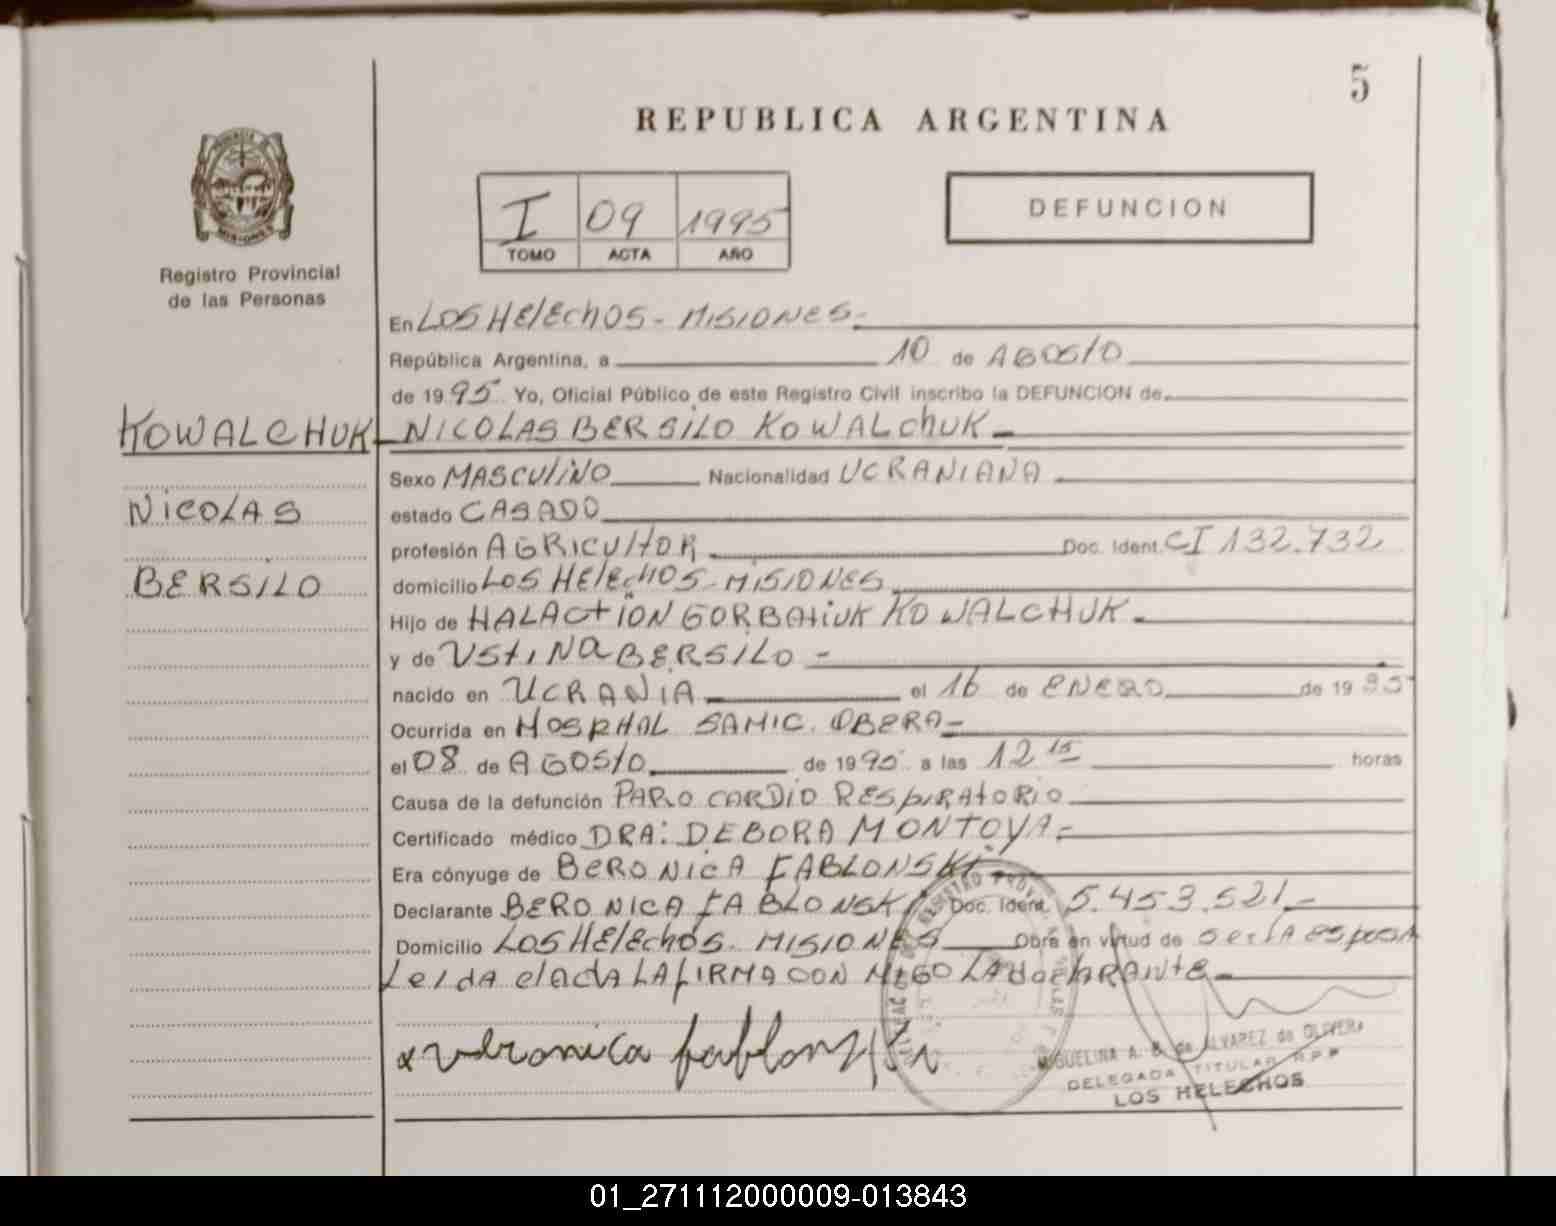 5
REPUBLICA ARGENTINA
I 09 1995
TOMO ACTA AÑO
DEFUNCION
Registro Provincial
de las Personas
KOWALCHUK
NICOLAS
BERSILO
En LOS HElEchOS - MISIONES -
República Argentina, a 10 de AGOSTO
de 1995 Yo, Oficial Público de este Registro Civil inscribo la DEFUNCION de
NICOLAS BERSILO KOWALChUK
Sexo MASCULINO Nacionalidad UCRANIANA
estado CASADO
profesión AGRICULTOR Doc. Ident. CI 132.732
domicilio LOS HElEcHOS - MISIONES
Hijo de HALACTION GORBATIUK KOWALCHUK -
y de USTINA BERSILO -
nacido en UCRANIA el 16 de ENERO de 19
Ocurrida en HOSPITAL SAMIC. OBERA -
el 08 de AGOSTO de 1995 a las 12 15 horas
Causa de la defunción PARO CARDIO RESpIRATORIO
Certificado médico DRA: DEBORA MONTOYA -
Era cónyuge de BERONICA FABLONSKI
Declarante BERONICA FABLONSKI Doc. Ident. 5.453.521 -
Domicilio LOS HElEchOS - MISIONES Obra en virtud de SER LA ESpOSA
LEIDA el ActA LA fIRMA CON MIGO LA dEclARANTE -
x veronica fablonski
MIGUELINA A. B. de ALVAREZ de OLIVERA
DELEGADA TITULAR R.P.P
LOS HELECHOS
01_271112000009-013843